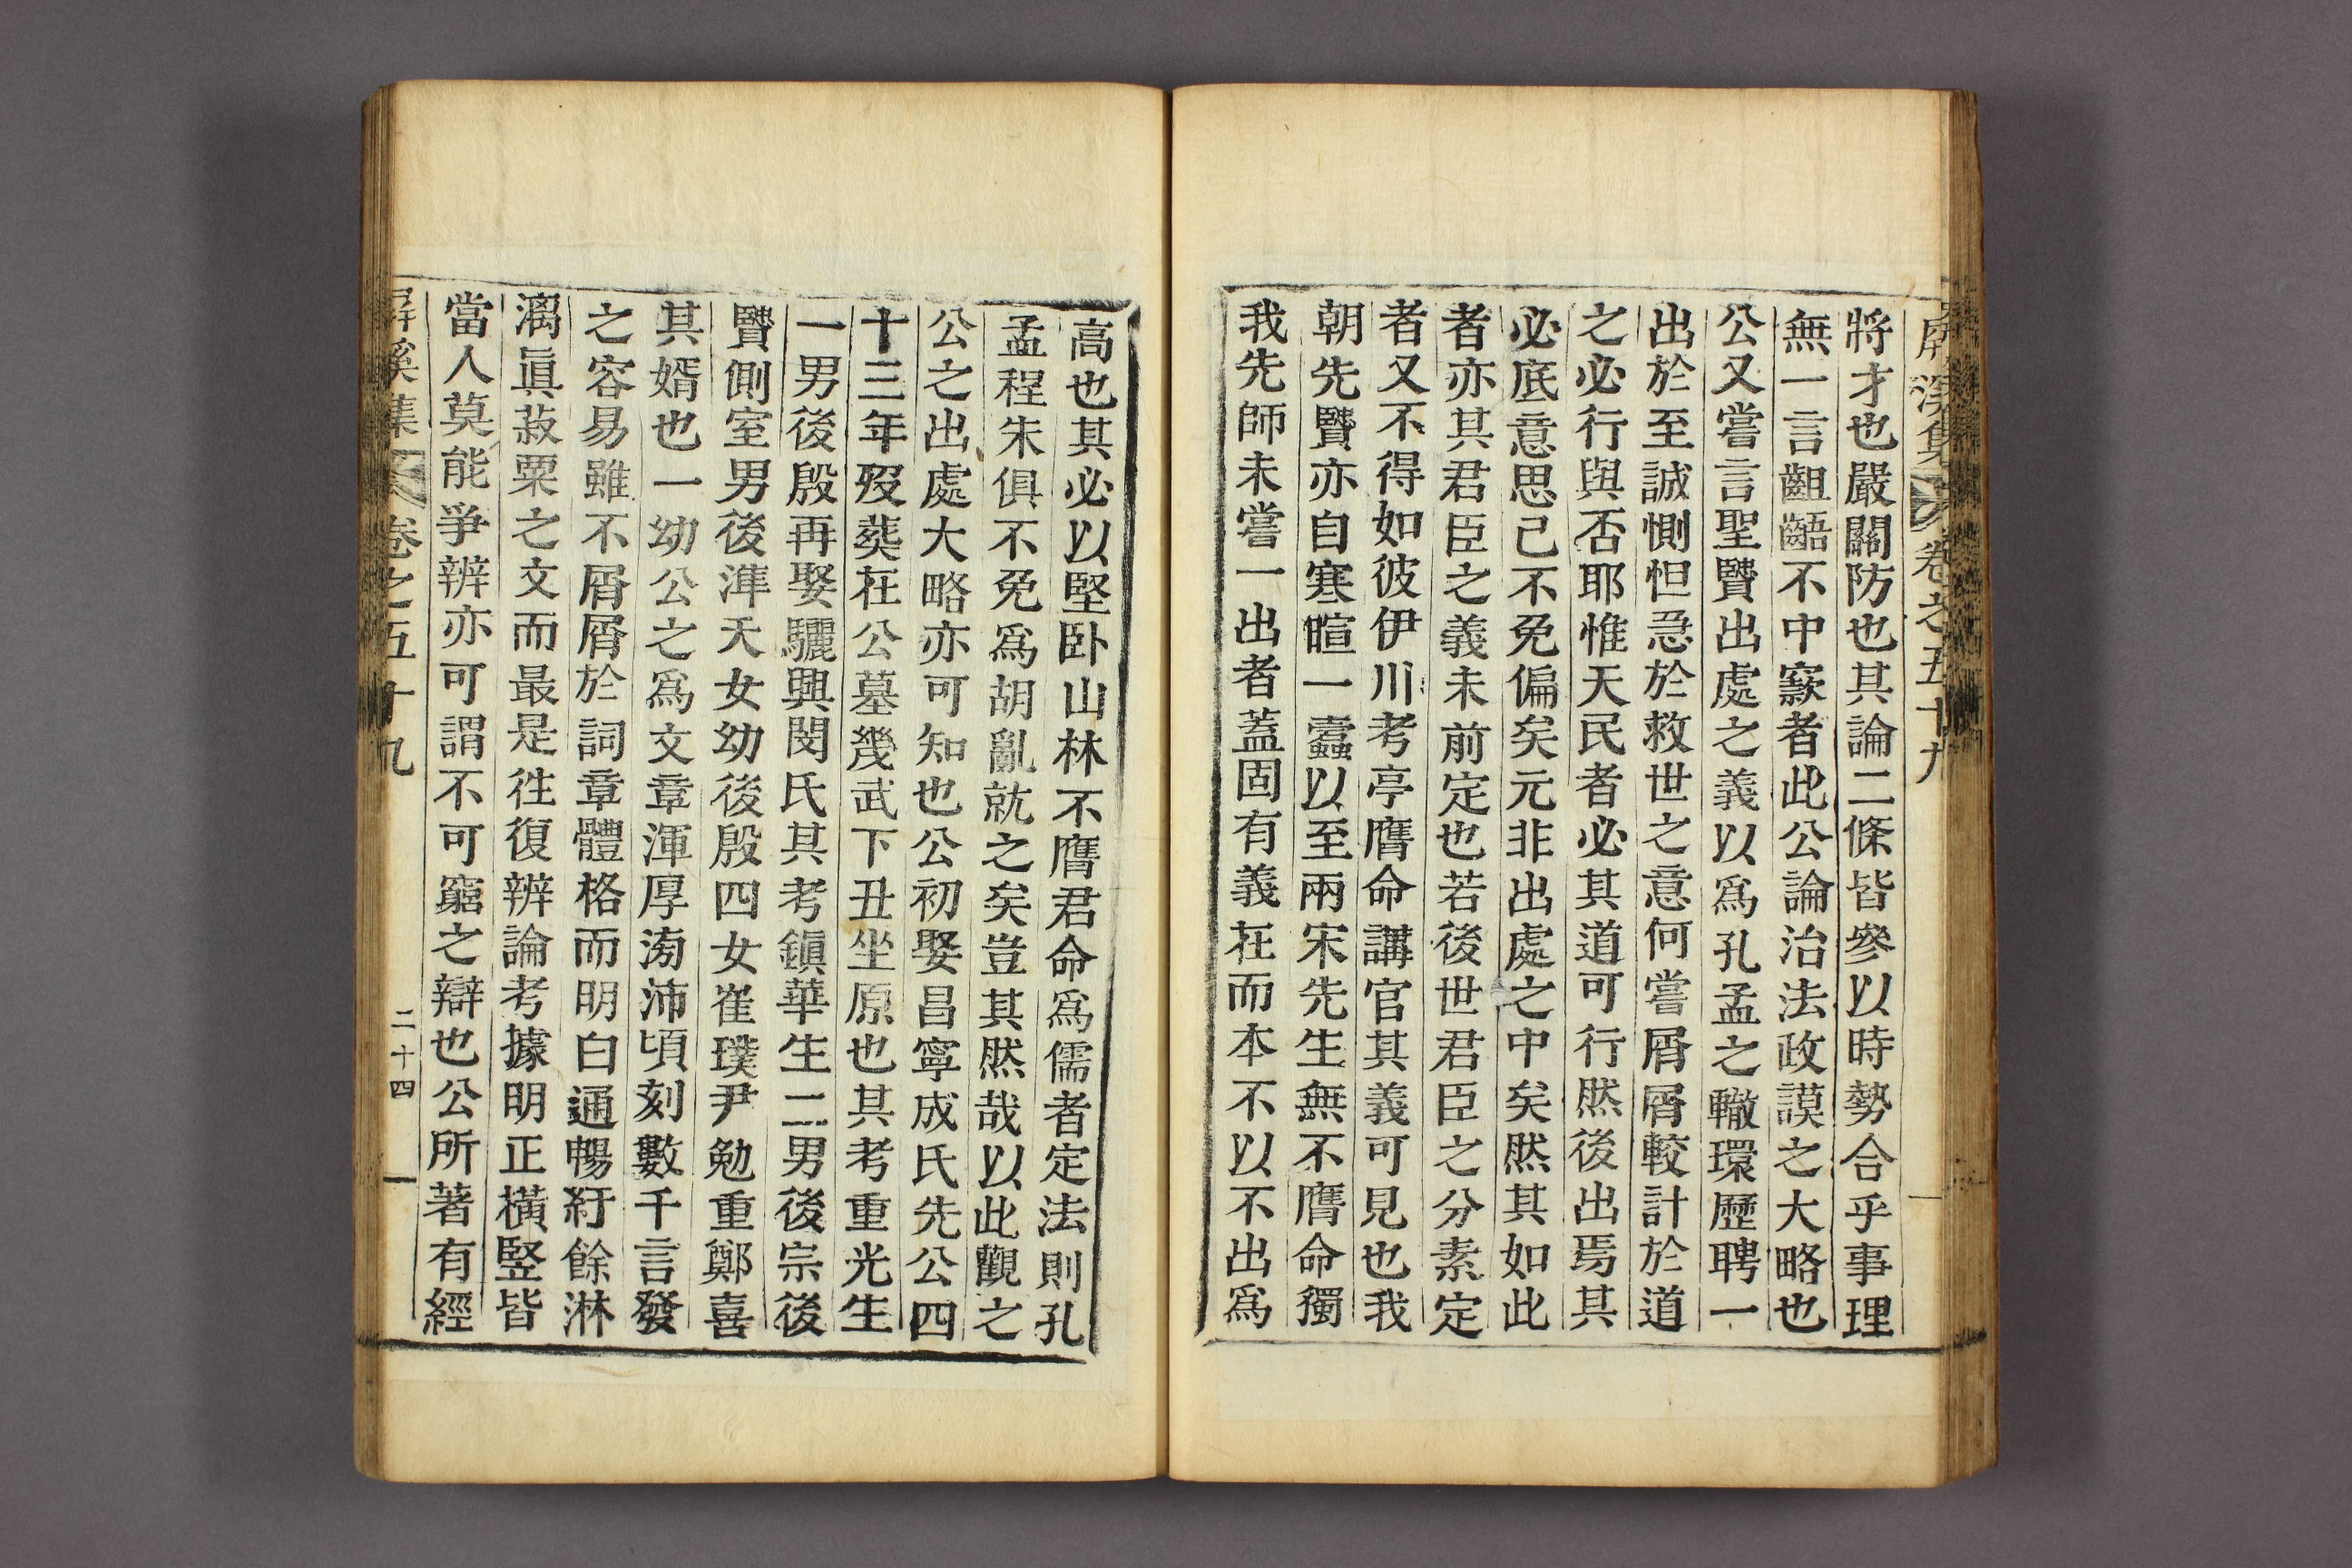 屛溪集 卷之五十九
將才也嚴關防也其論二條皆參以時勢合乎事理
無一言齟齬不中窾者此公論治法政謨之大略也
公又嘗言聖賢出處之義以爲孔孟之轍環歷聘一
出於至誠惻怛急於救世之意何嘗屑屑較計於道
之必行與否耶惟天民者必其道可行然後出焉其
必底意思己不免偏矣元非出處之中矣然其如此
者亦其君臣之義未前定也若後世君臣之分素定
者又不得如彼伊川考亭膺命講官其義可見也我
朝先賢亦自寒暄一蠹以至兩宋先生無不膺命獨
我先師未嘗一出者蓋固有義在而本不以不出爲
高也其必以堅卧山林不膺君命爲儒者定法則孔
孟程朱俱不免爲胡亂就之矣豈其然哉以此觀之
公之出處大略亦可知也公初娶昌寧成氏先公四
十三年歿葬在公墓幾武下丑坐原也其考重光生
一男後殷再娶驪興閔氏其考鎭華生二男後宗後
賢側室男後滓夭女幼後殷四女崔璞尹勉重鄭喜
其婿也一幼公之爲文章渾厚滂沛頃刻數千言發
之容易雖不屑屑於詞章體格而明白通暢紆餘淋
漓眞菽粟之文而最是往復辨論考據明正橫竪皆
當人莫能爭辨亦可謂不可窮之辯也公所著有經
屛溪集 卷之五十九 二十四